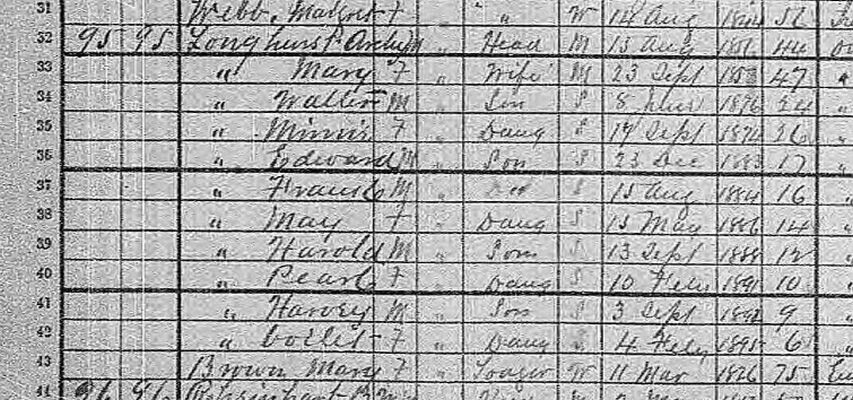 31 Webb, F " W 14 Aug 56
32 95 95 Longhurst M " Head M 15 Aug 1856 44
33 " Mary F " Wife M 23 Sept 1853 47 "
34 " Walter M " Son S 8 1876 24 "
35 " Minnie F " Daug S 17 Sept 1874 26 "
36 " Edward M " Son S 23 Dec 1883 17 "
37 " Frank M " S 15 Aug 1884 16 "
38 " May F " Daug S 15 May 1886 14 "
39 " Harold M " Son S 13 Sept 1888 12 "
40 " Pearl F " Daug S 10 Feby 1891 10 "
41 " Harvey M " Son S 3 Sept 9 "
42 " F " Daug S 4 Feby 1895 6 "
43 Brown Mary F " Lodger W 11 Mar 1826 75
44 96 96